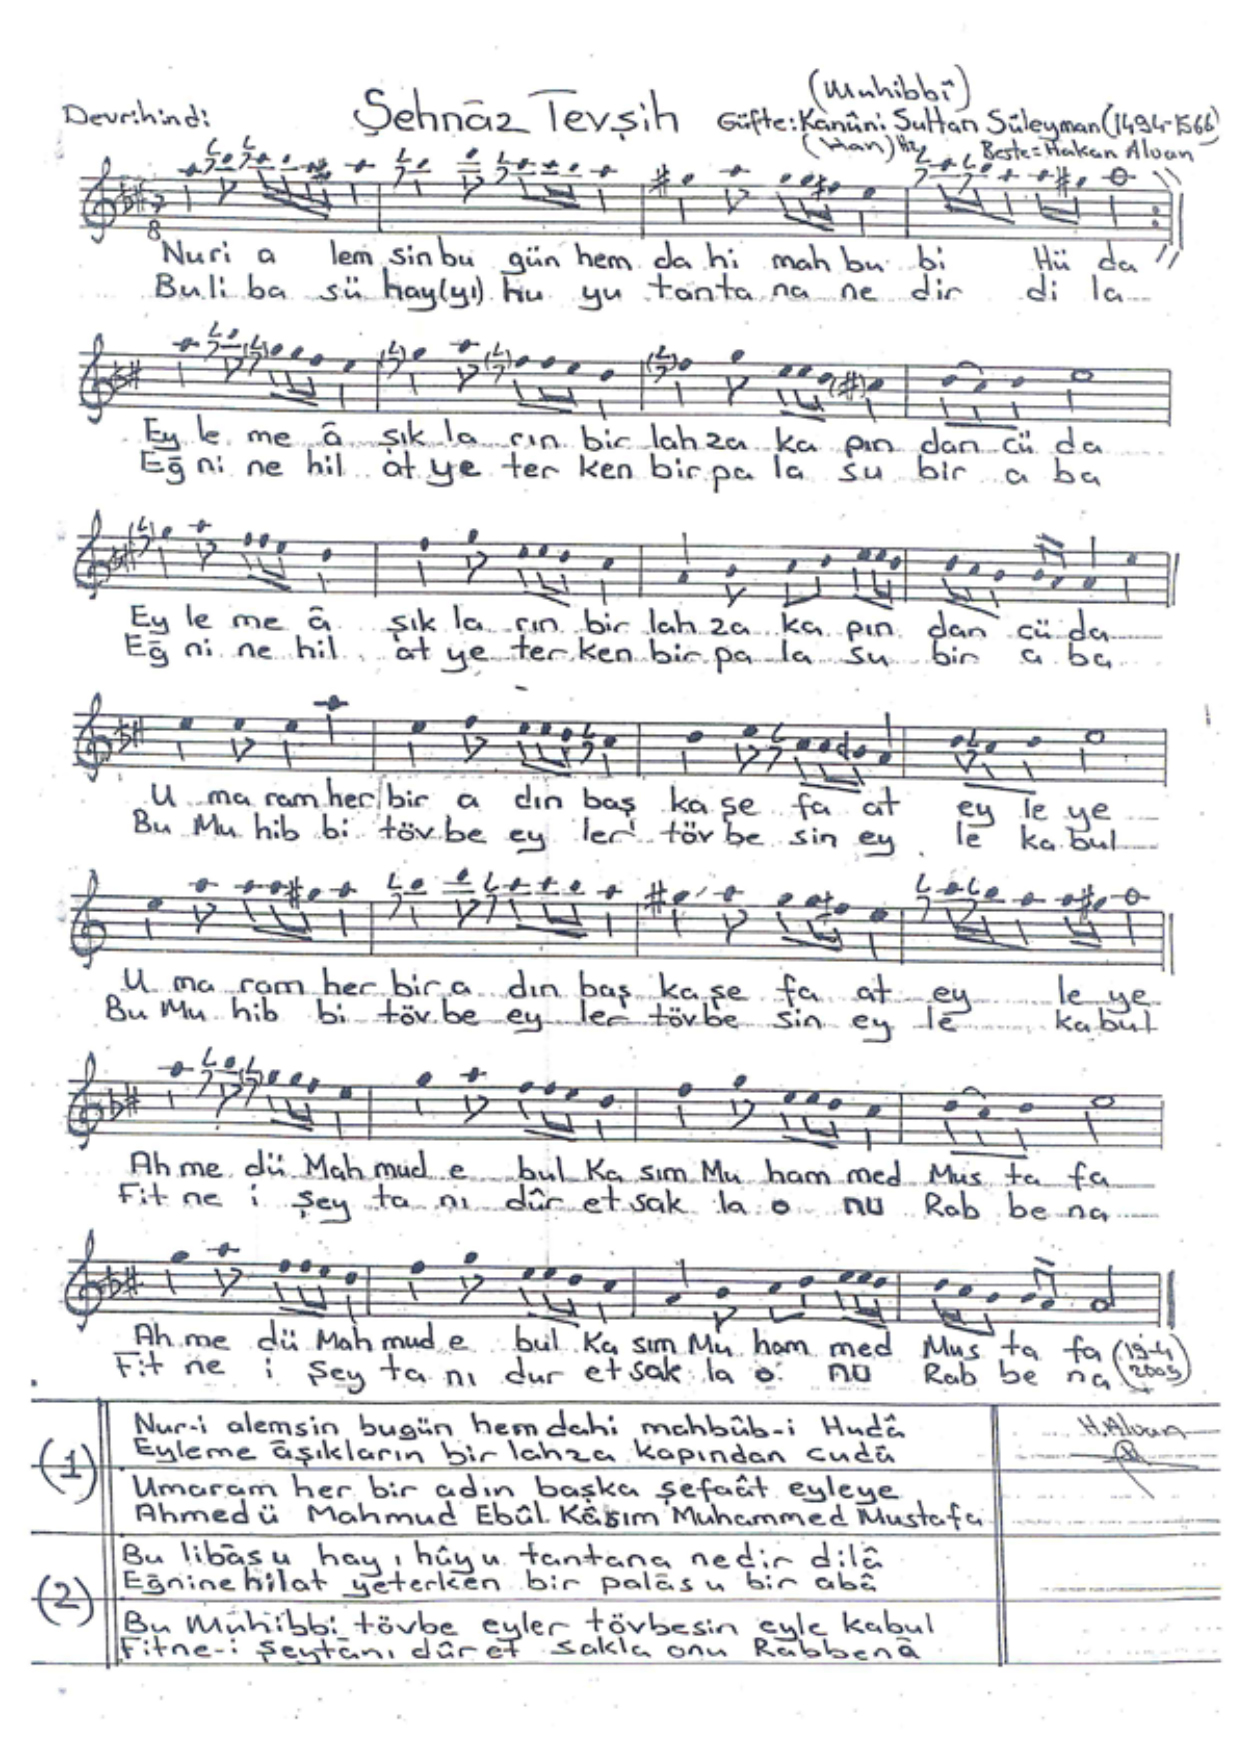 (Muhibbî)
Devrihindi Şehnāz Tevşih Güfte: Kanûni Sultan Süleyman (1494-1566)
(Han) Hz. Beste = Hakan Alvan
Nuri a lem sin bu gün hem da hi mah bu bi Hü da
Bu li ba sü hay(yı) hu yu tanta na ne dir di la
Ey le me â şık la rın bir lah za ka pın dan cü da
Eğ ni ne hil at ye ter ken bir pa la su bir a ba
Ey le me â şık la rın bir lah za ka pın dan cü da
Eğ ni ne hil at ye ter ken bir pa la su bir a ba
U ma ram her bir a dın baş ka şe fa at ey le ye
Bu Mu hib bi töv be ey ler töv be sin ey le ka bul
U ma ram her bir a dın baş ka şe fa at ey le ye
Bu Mu hib bi töv be ey ler tövbe sin ey le kabul
Ah me dü Mah mud e bul Ka sım Mu ham med Mus ta fa
Fit ne i şey ta nı dûr et sak la o nu Rab be na
Ah me dü Mah mud e bul Ka sım Mu ham med Mus ta fa
Fit ne i şey ta nı dur et sak la o nu Rab be na (19-4 2005)
(1) Nur-i alemsin bugün hem dahi mahbûb-i Hudâ H. Alvan
Eyleme āşıkların bir lahza kapından cudā
Umaram her bir adın başka şefaât eyleye
Ahmed ü Mahmud Ebûl Kâsım Muhammed Mustafa
(2) Bu libās u hay ı hûy u tantana nedir dilâ
Eğnine hilat yeterken bir palās u bir abâ
Bu Mûhibbi tövbe eyler tövbesin eyle kabul
Fitne-i şeytānı dûr et sakla onu Rabbenā